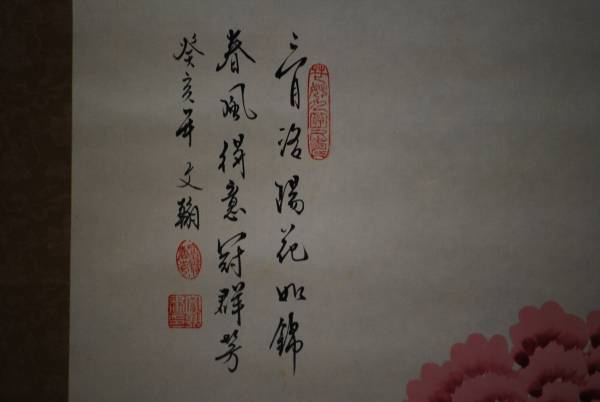 三月洛陽花如錦
春風得意冠群芳
癸亥年文翰